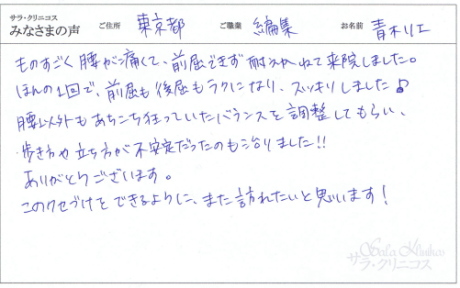 サラ・クリニコス
みなさまの声 ご住所 東京都 ご職業 編集 お名前 青木リエ
ものすごく腰が痛くて、前屈できず耐えかねて来院しました。
ほんの1回で、前屈も後屈もラクになり、スッキリしました♪
腰以外もあちこち狂っていたバランスを調整してもらい、
歩き方や立ち方が不安定だったのも治りました!!
ありがとうございます。
このクセづけをできるように、また訪れたいと思います!
サラ・クリニコス